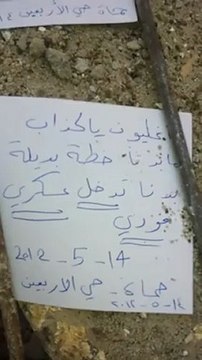 حماة حي الأربعين
غليون يا كذاب
ما بدنا خطة بديلة
بدنا تدخل عسكري
فوري
2012 - 5 - 14
حماة - حي الاربعين
٢٠١٢ - ٥ - ١٤